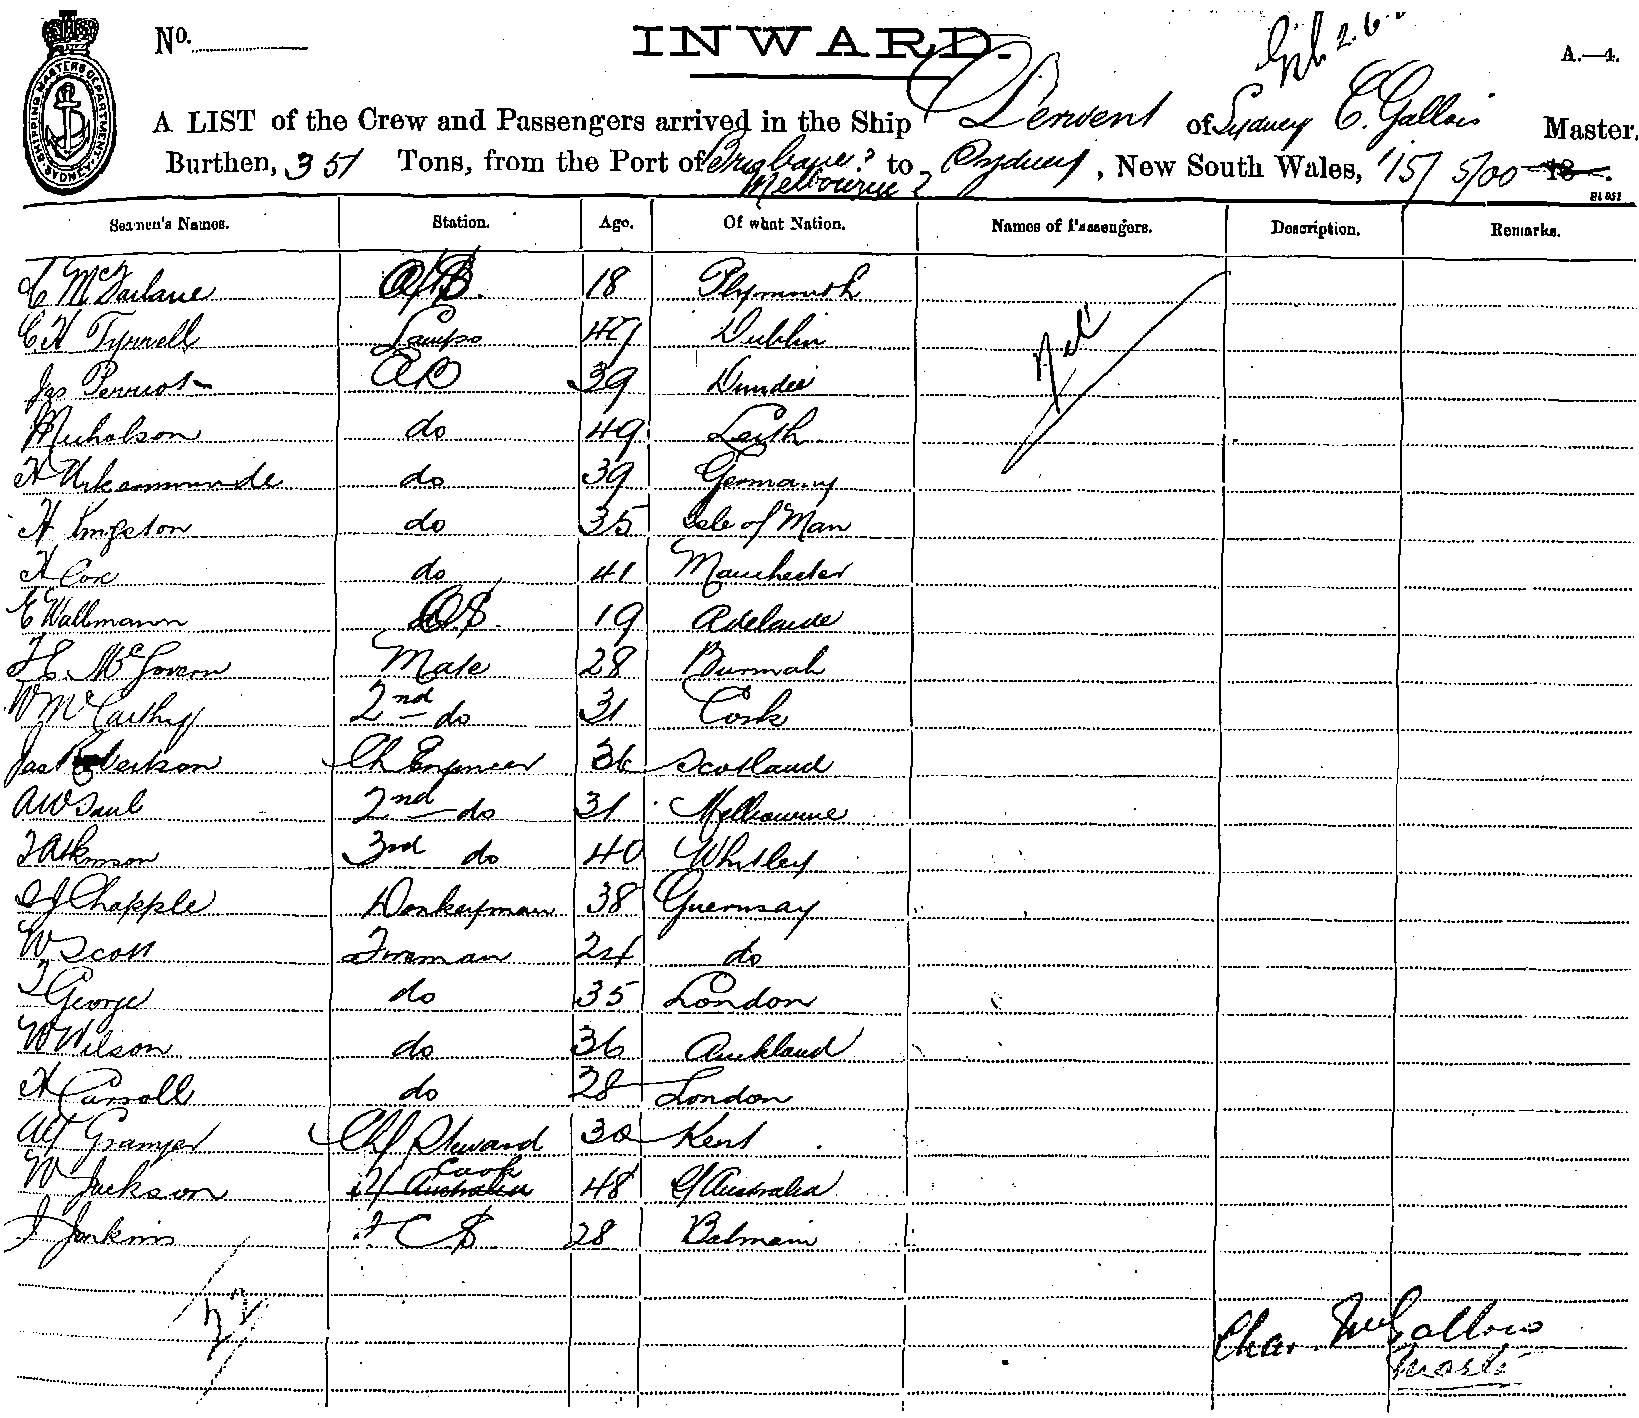 No.
INWARD.
A.—4.
SHIPPING MASTERS DEPARTMENT SYDNEY
A LIST of the Crew and Passengers arrived in the Ship Derwent of Sydney C. Gallois Master.
Burthen, 351 Tons, from the Port of Brisbane? to Sydney, New South Wales, 15/5/00 18
Melbourne?
Seamen's Names. Station. Age. Of what Nation. Names of Passengers. Description. Remarks.
McFarlane 18 Plymouth
C H Tyrrell Lamps 49 Dublin
Jas Perriot AB 39 Dundee
Nicholson do 49 Leith
H do 39 Germany
H Kingston do 35 Isle of Man
H Cox do 41 Manchester
E Wallmann OS. 19 Adelaide
McGovern Mate 28 Burmah
W McCarthy 2nd do 31 Cork
Jas Robertson Ch Engineer 36 Scotland
A W Saul 2nd do 31 Melbourne
T Atkinson 3rd do 40 Whitley
Chapple Donkeyman 38 Guernsay
W Scott Fireman 24 do
T George do 35 London
W Wilson do 36 Auckland
H Carroll do 28 London
Granger Chf Steward 30 Kent
Cook
W Jackson Australia 48 Australia
Jenkins S 28 Balmain
Nil
22
Chas. Wm Gallois
Master